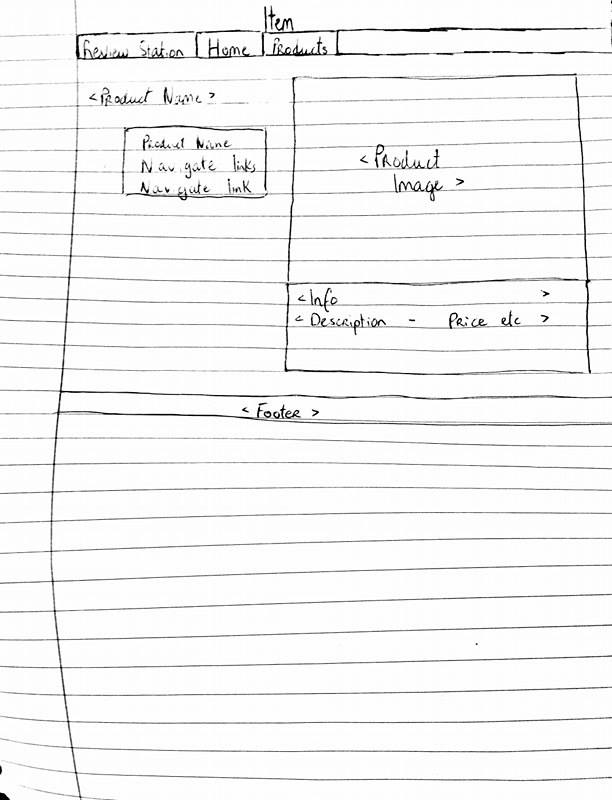 Item
Review Station Home Products
<Product Name>
Product Name
Navigate links
Navigate link
<Product
Image>
<Info >
<Description - Price etc >
<Footer>